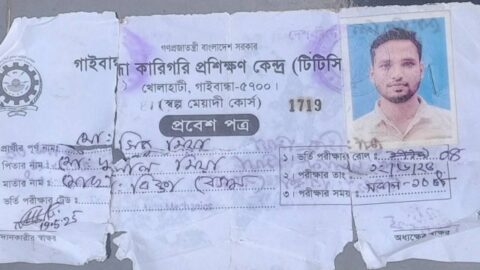 গণপ্রজাতন্ত্রী বাংলাদেশ সরকার
গাইবান্ধা কারিগরি প্রশিক্ষণ কেন্দ্র (টিটিসি
খোলাহাটী, গাইবান্ধা-৫৭০০।
(স্বল্প মেয়াদী কোর্স) 1719
প্রবেশ পত্র
প্রার্থীর পূর্ণ নাম: মো: মিয়া
পিতার নাম: মো: দুলাল মিয়া
মাতার নাম: মোছা:
ভর্তি পরীক্ষার ট্রেড:
১। ভর্তি পরীক্ষার রোল:
২। পরীক্ষার তাং
৩। পরীক্ষার সময়: সকাল-১০
19-5-25
দানকারীর স্বাক্ষর
অধ্যক্ষের স্বাক্ষর